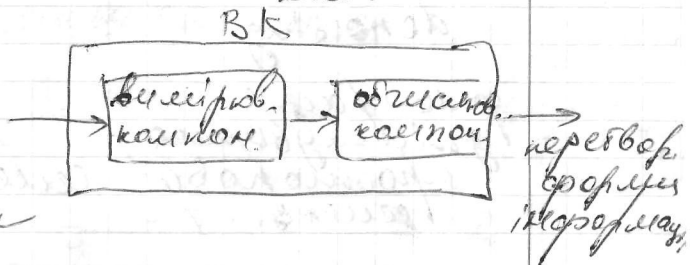 ВК
вимірюв.
компон.
обчислюв.
компон.
перетвор.
форми
інформац.